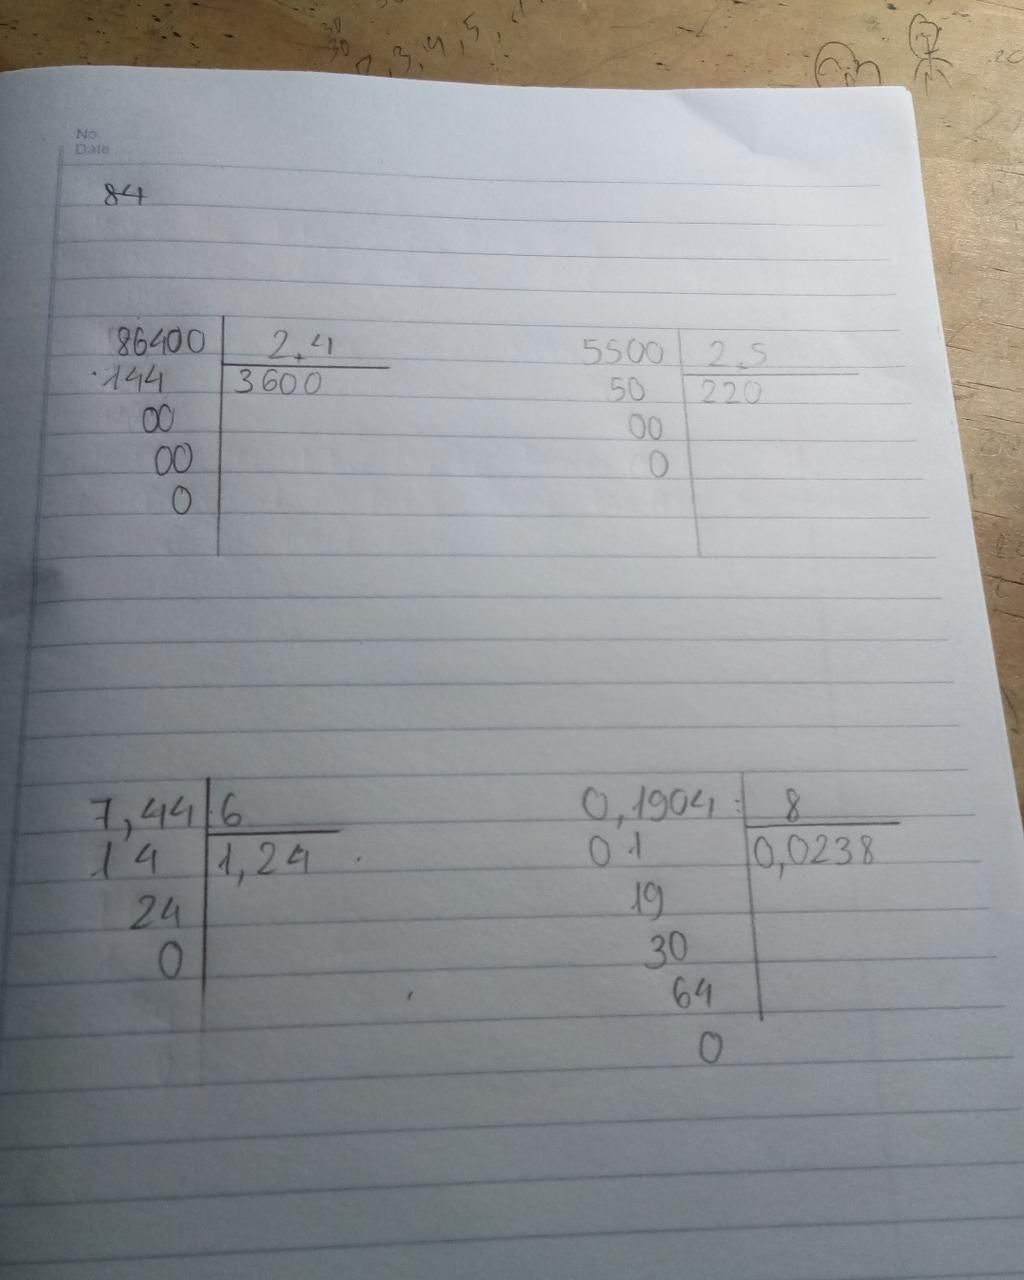 3, 4, 5,
No.
Date
84
86400 2,4
144 3600
00
00
0
5500 2,5
50 220
00
0
7,44 : 6
14 1,24
24
0
0,1904 : 8
01 0,0238
19
30
64
0